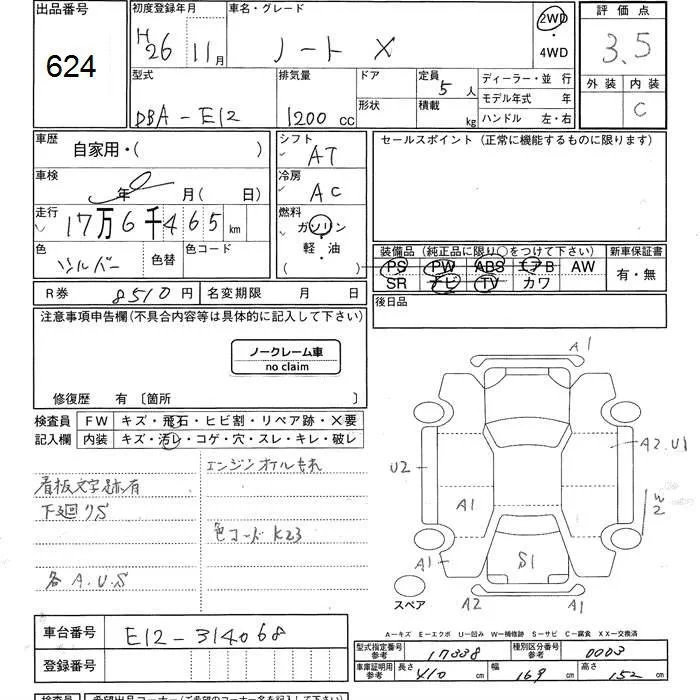 出品番号 初度登録年月 車名・グレード 2WD 評価点
624 H26 11月 ノート X ・ 4WD 3.5
型式 排気量 ドア 定員 5 人 ディーラー・並 行 外装 内装
DBA-E12 1200 cc 形状 積載 kg モデル年式 年 C
ハンドル 左・右
車歴 自家用・( ) シフト AT セールスポイント (正常に機能するものに限ります)
車検 年 月(日) 冷房 AC
走行 17万6千465 km 燃料 ガソリン
色 シルバー 色替 色コード 軽・油
( )
装備品 (純正品に限り○をつけて下さい) 新車保証書
PS PW ABS エアB AW 有・無
SR ナビ TV カワ
R券 8510円 名変期限 月 日 後日品
注意事項申告欄(不具合内容等は具体的に記入して下さい)
ノークレーム車
no claim
修復歴 有 〔箇所 〕
検査員 FW キズ・飛石・ヒビ割・リペア跡・X要
記入欄 内装 キズ・汚レ・コゲ・穴・スレ・キレ・破レ
エンジンオイルもれ
看板文字跡有
下廻りS
色コードK23
各A.U.S
A1
U2
A2.U1
A1
W2
A1
S1
A2
A1
スペア
A−キズ E−エクボ U−凹み W−補修跡 S−サビ C−腐食 XX−交換済
車台番号 E12-314068
登録番号
型式指定番号 参考 17338 種別区分番号 参考 0003
車庫証明用 参考 長さ 410 cm 幅 169 cm 高さ 152 cm